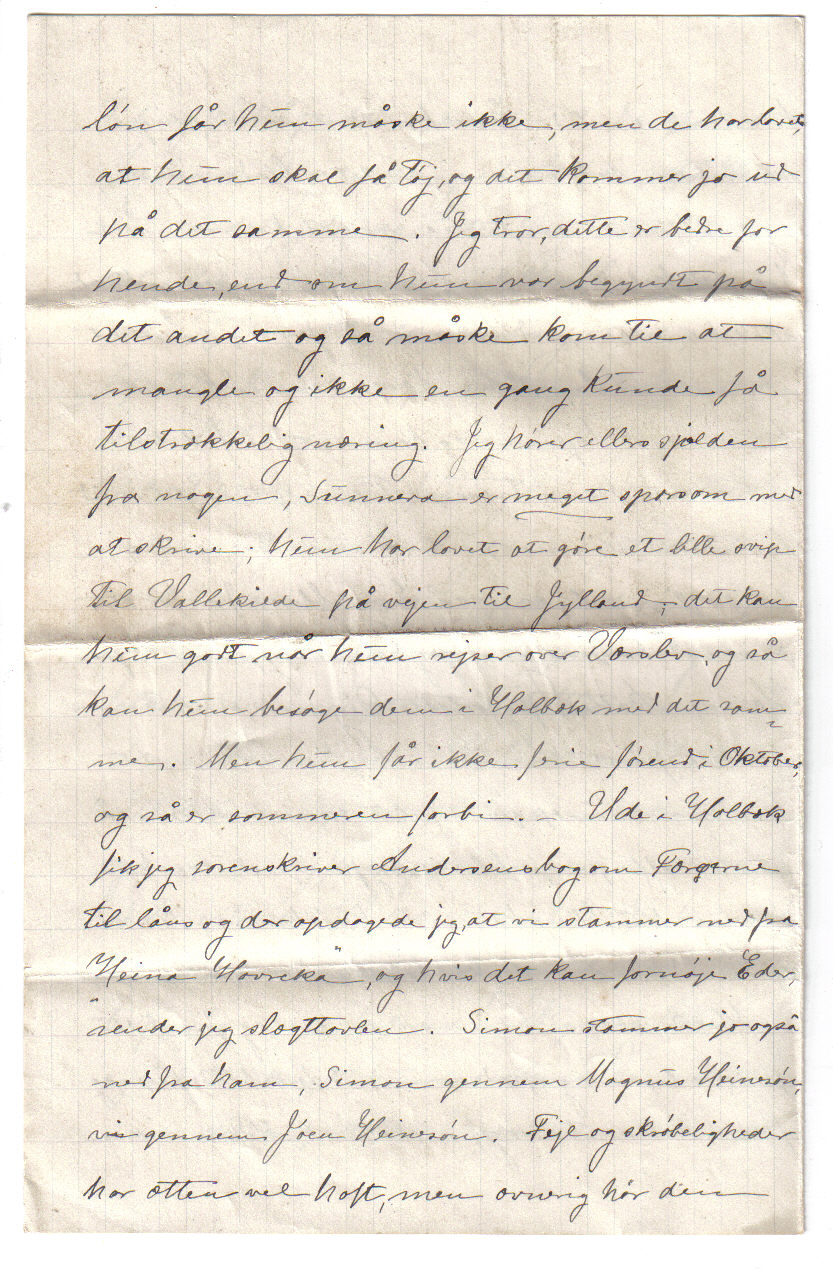 lón får hún måske ikke, men de har lovet,
at hún skal få Tøj, og det kommer jo ud
på det samme. Jeg tror, dette er bedre for
hende, end om hún var begyndt på
det andet og så måske kom til at
mangle og ikke en gang kunde få
tilstrækkelig næring. Jeg hører ellers sjælden
fra nogen, Súnneva er meget sparsom med
at skrive; hún har lovet at góre et lille svip
til Vallekilde på vejen til Jylland; det kan
hún godt når hún rejser over Værslev, og så
kan hún besóge dem i Holbæk med det sam-
me. Men hún får ikke ferie fórend i Oktober,
og så er sommeren forbi. – Ude i Holbæk
fik jeg sorenskriver Andersens bog om Færøerne
til låns og der opdagede jeg, at vi stammer ned fra
"Heina Havreka", og hvis det kan fornøje Eder,
sender jeg slægttavlen. Simon stammer jo også
ned fra ham, Simon gennem Magnus Heinesón,
vi gennem Joen Heinesón. Fejl og skróbeligheder
har ætten vel haft, men svnerig har den